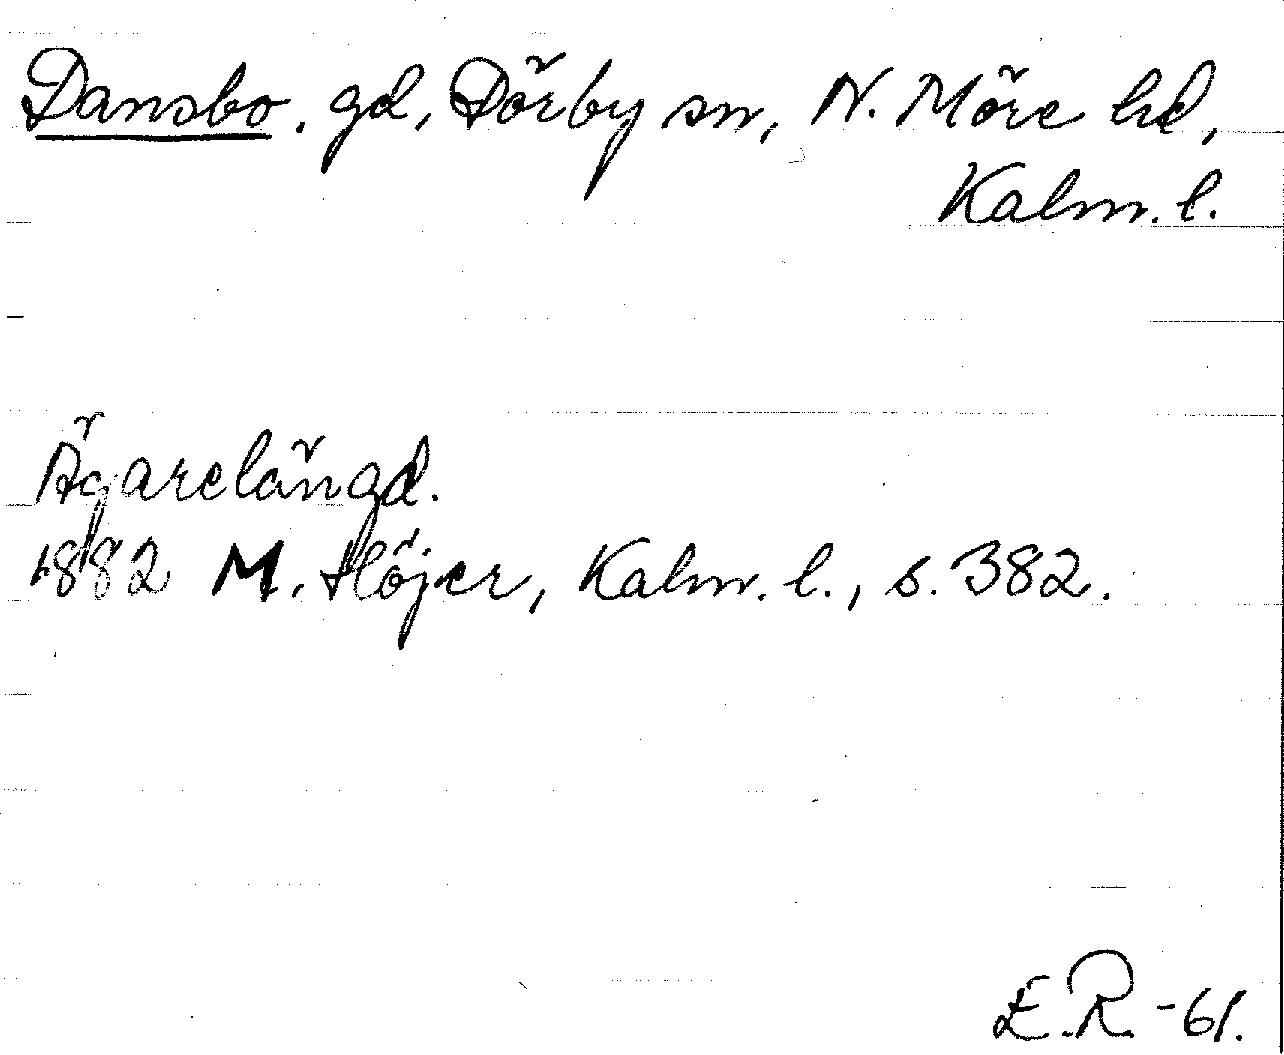 Dansbo. gd, Dörby sn, N. Möre hd,
Kalm. l.
Ägarelängd.
1882 M. Höjer, Kalm. l., s. 382.
E.R. -61.